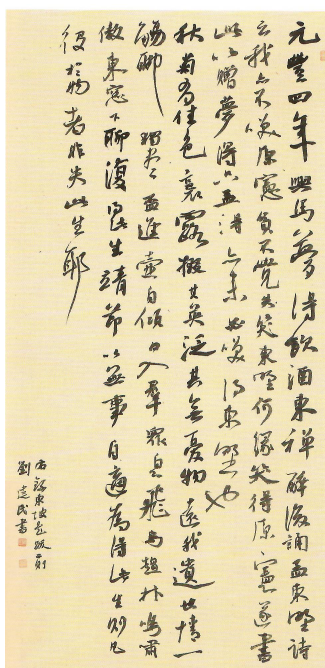 元豐四年與馬夢得飲酒東禪醉後誦孟東野詩
云我亦不笑原憲貧不覺失笑東野何緣笑得原憲遂書
此以贈夢得只夢得亦未必笑得東野也
秋菊有佳色裛露掇其英泛此忘憂物遠我遺世情一
觴聊獨進杯盡壺自傾日入群眾息飛鳥趨林鳴嘯
傲東窗下聊復得此生靖節以無事自適為得此生則凡
役於物者非失此生耶
右錄東坡題跋二則
劉建民書